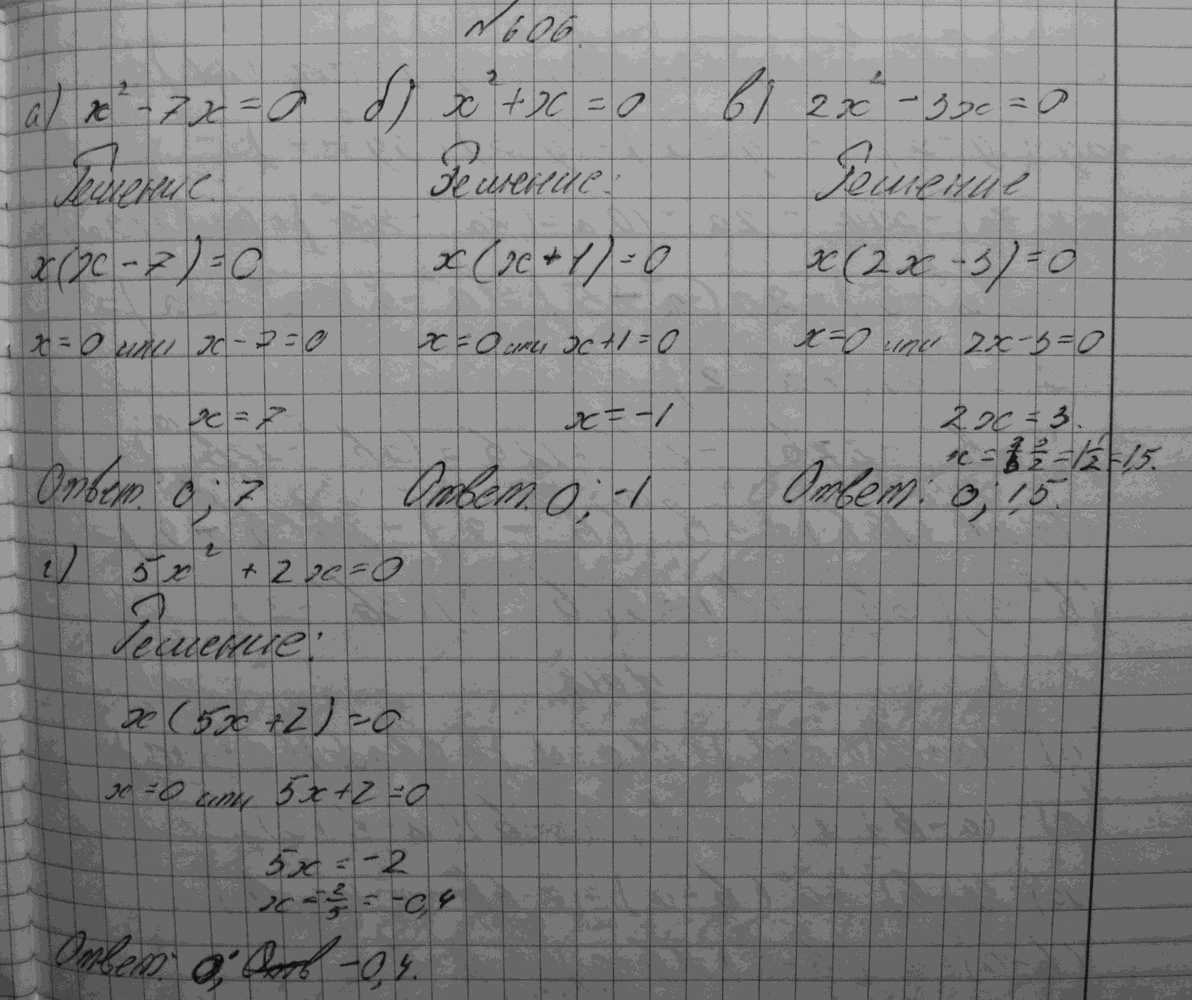 №606.
а) x² - 7x = 0 б) x² + x = 0 в) 2x² - 3x = 0
Решение: Решение: Решение
x(x - 7) = 0 x(x + 1) = 0 x(2x - 3) = 0
x = 0 или x - 7 = 0 x = 0 или x + 1 = 0 x = 0 или 2x - 3 = 0
x = 7 x = -1 2x = 3.
x = 3/2 = 1 1/2 = 1,5.
Ответ: 0; 7 Ответ: 0; -1 Ответ: 0; 1,5.
г) 5x² + 2x = 0
Решение:
x(5x + 2) = 0
x = 0 или 5x + 2 = 0
5x = -2
x = -2/5 = -0,4
Ответ: 0; -0,4.